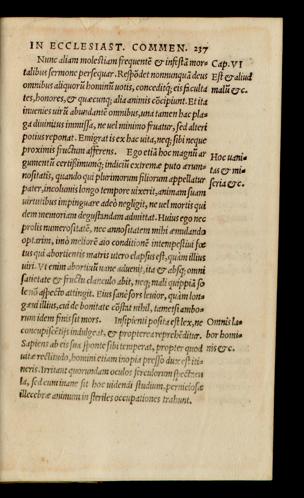 IN ECCLESIAST. COMMEN. 237
Nunc aliam molestiam frequentē & infestā mor-
talibus sermone persequar. Respōdet nonnunquā deus
omnibus aliquorū hominū uotis, conceditq́; eis faculta
tes, honores, & quæcunq; alia animis cōcipiunt. Et ita
inuenies uirū abundantē omnibus, una tamen hac pla-
ga diuinitus immissa, ne uel minimo fruatur, sed alteri
potius reponat. Emigrat is ex hac uita, neq; sibi neque
proximis fructum afferens. Ego etiā hoc magnū ar
gumentū certissimumq́; indiciū extremæ puto ærum-
nositatis, quando qui plurimorum filiorum appellatur
pater, incolumis longo tempore uixerit, animam suam
uirtutibus impinguare adeò negligit, ne uel mortis qui
dem memoriam degustandam admittat. Huius ego nec
prolis numerositatē, nec annositatem mihi æmulando
optarim, imò meliorē aio conditionē intempestiui fœ
tus qui abortientis matris utero elapsus est, quàm illius
uiri. Vt enim abortiuū uanè aduenit, ita & absq; omni
satietate & fructu clanculo abit, neq; mali quippiā so
lenō aspecto attingit. Eius sanè sors leuior, quàm lon-
gæui illius, cui de bonitate cōstat nihil, tametsi ambo-
rum idem finis sit mors. Insipienti posita est lex, ne
concupiscētijs indulgeat, & propterea reprehēditur.
Sapiens ab eis sua sponte sibi temperat, propter quod
uitæ rectitudo, homini etiam inopia presso dux est iti-
neris. Irritant quorundam oculos ferculorum spectacu
la, sed eum inane sit hoc uidendi studium, perniciosæ
illecebræ animum in steriles occupationes trahunt.
Cap. VI
Est & aliud
malū &c.
Hoc uani-
tas & mi-
seria &c.
Omnis la-
bor homi-
nis &c.